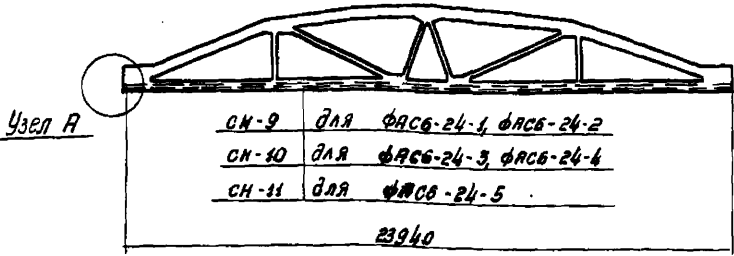 Узел А
СН-9 для ФАС6-24-1, ФАС6-24-2
СН-10 для ФАС6-24-3, ФАС6-24-4
СН-11 для ФАС6-24-5
23940